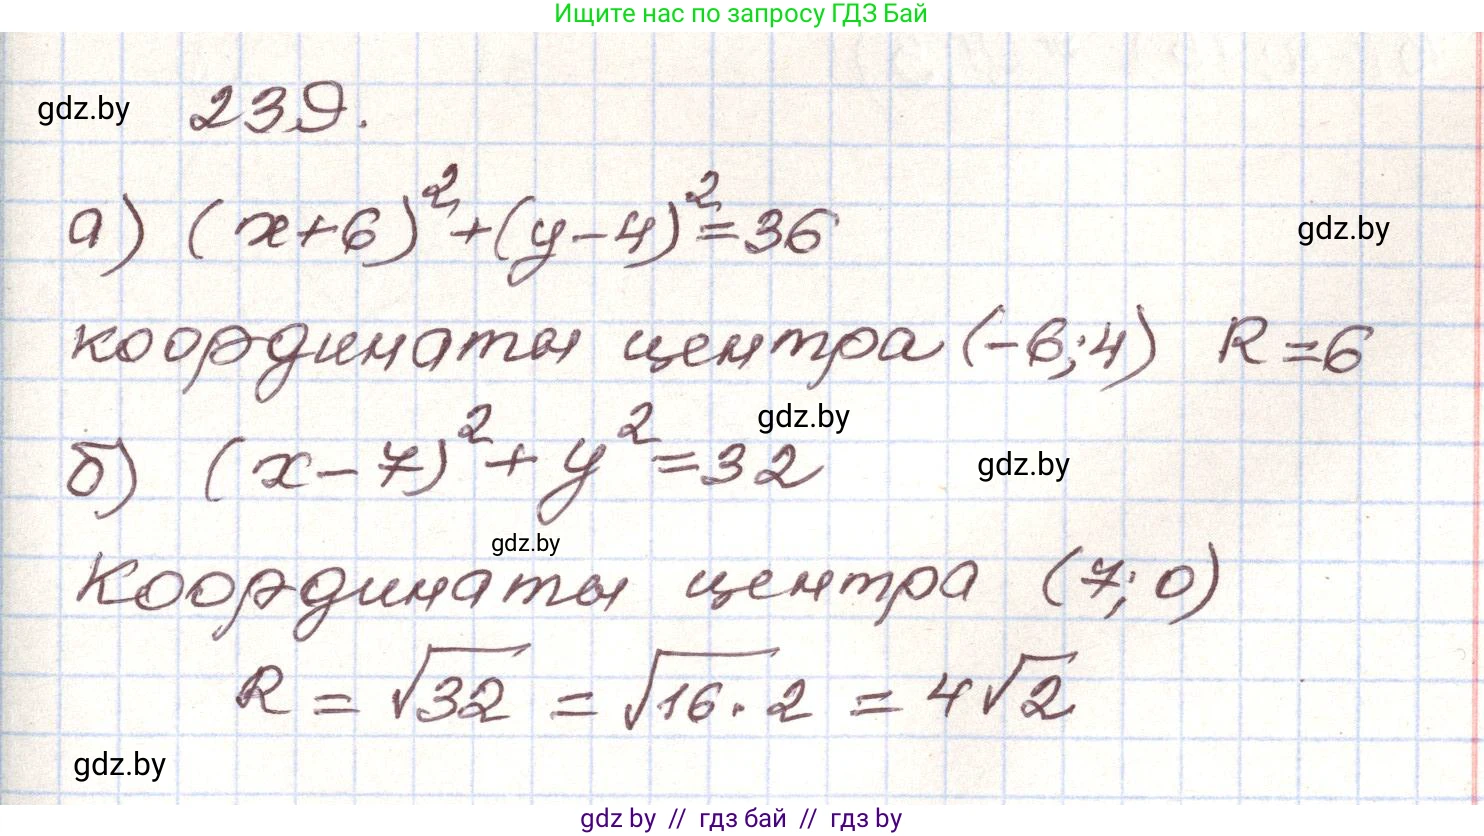 Ищите нас по запросу ГДЗ Бай
gdz.by 239.
а) (x+6)²+(y-4)²=36
gdz.by
координаты центра (-6;4) R=6
gdz.by
б) (x-7)²+y²=32
gdz.by
gdz.by
Координаты центра (7;0)
R=√32=√16·2=4√2
gdz.by
gdz by // гдз бай // гдз by